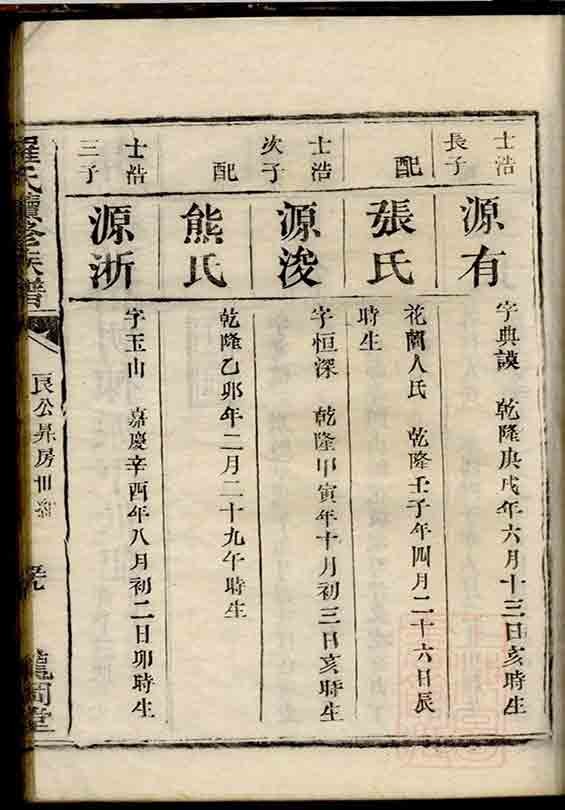 士浩
長子
源有
字典謨 乾隆庚戌年六月十三日亥時生
配
張氏
花蘭人氏 乾隆壬子年四月二十六日辰
時生
士浩
次子
源浚
字恒深 乾隆甲寅年十月初三日亥時生
配
熊氏
乾隆乙卯年二月二十九午時生
士浩
三子
源浙
字玉山 嘉慶辛酉年八月初二日卯時生
羅氏續修族譜
良公昇房世